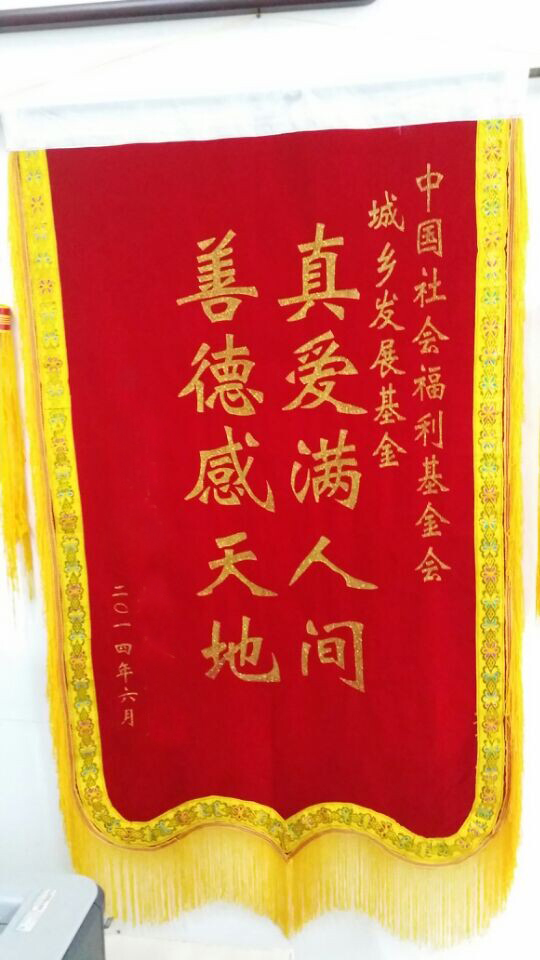 中国社会福利基金会
城乡发展基金
真爱满人间
善德感天地
二〇一四年六月